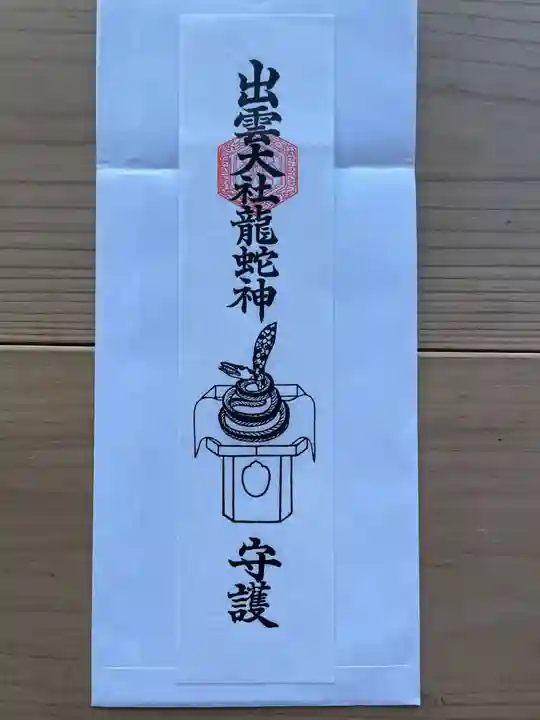 出雲大社龍蛇神
守護